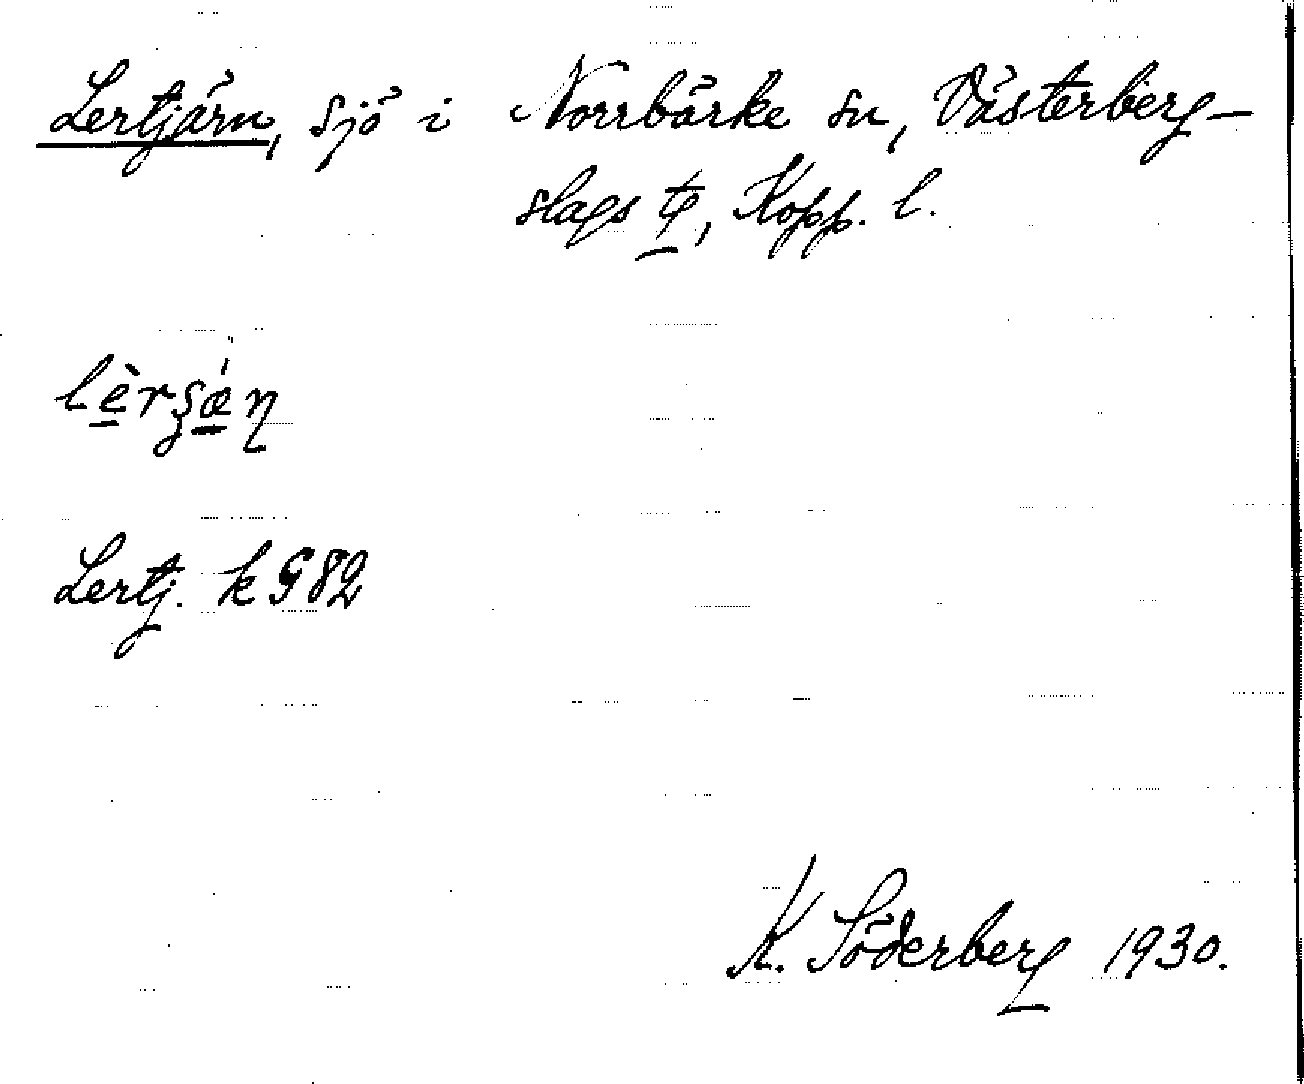 Lertjärn, sjö i Norrbärke sn, Västerberg-
slags
Kopp. l.
Lertj. k G 82
K. Söderberg 1930.